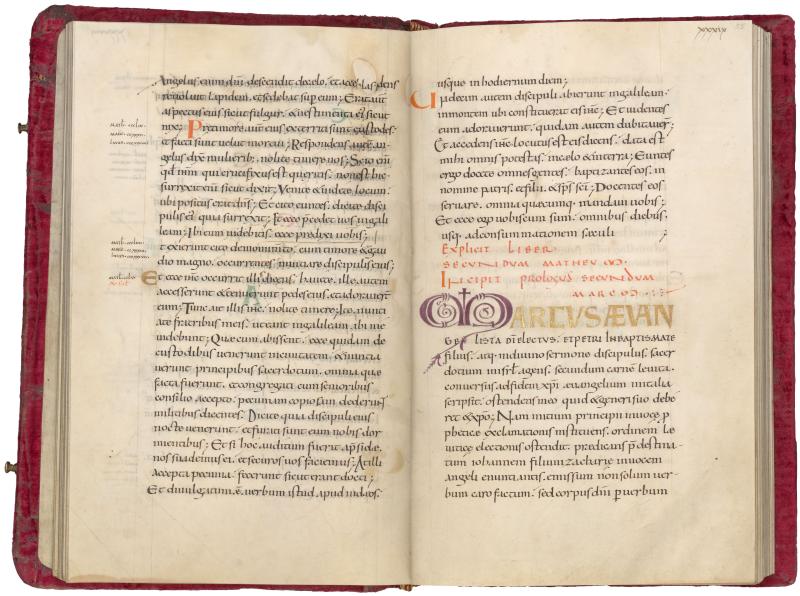 Angelus enim dñi descendit decelo. et accedens
reuoluit lapidem. et sedebat sup eum; Erat aut
aspectus eius sicut fulgur. & uestimenta eius sicut
nix; Pretimore aut eius exterriti sunt custodes.
et facti sunt uelut mortui; Respondens aute an
gelus dix mulierib; nolite timere uos; Scio eni
qđ ihm qui crucifixus est queritis. non est hic
surrexit eni sicut dixit; Venite & uidete locum.
ubi positus erat dns; Et cito euntes. dicite disci
pulis ei quia surrexit; Et ecce pcedet uos ingali
leam; Ibi eum uidebitis. ecce predixi uobis;
Et exierunt cito demonumto. cum timore & gau
dio magno. currentes nuntiare discipulis eius;
Et ecce ihc occurrit illis dicens. hauete. ille autem
accesserunt & tenuerunt pedes eius. et adorauer
eum; Tunc ait illis ihc. nolite timere; Ite. nunti
ate fratribus meis. ut eant ingalileam. ibi me
uidebunt; Quae cum abissent. ecce quidam de
custodibus uenerunt inciuitatem. & nuntia
uerunt principibus sacerdotum. omnia que
facta fuerant. et congregati cum senioribus
consilio accepto. pecuniam copiosam dederunt
militibus dicentes. Dicite quia discipuli eius
nocte uenerunt. et furati sunt eum nobis dor
mientibus; Et si hoc auditum fuerit a pside.
nos suadebimus ei. et securos uos faciemus; At illi
accepta pecunia. fecerunt sicut erant docti;
Et diuulgatum ē uerbum istud. apud iudeos.
xxxviiii
usque in hodiernum diem;
Undecim autem discipuli abierunt ingalileam.
inmontem ubi constituerat eis ihc; Et uidentes
eum. adorauerunt. quidam autem dubitauer;
Et accedens ihc locutus est eis dicens. data est
mihi omnis potestas. incaelo & interra; Euntes
ergo docete omnes gentes. baptizantes eos. in
nomine patris. et filii. & sps sci; Docentes eos
seruare. omnia quecumq; mandaui uobis;
Et ecce ego uobiscum sum. omnibus diebus.
usq; adconsummationem saeculi;
Explicit liber
secundum matheum.
Incipit prologus secundum
marcum.
MARCUS ÆVAN
GELISTA DI ELECTUS. ET PETRI IN BAPTISMATE
filius. atq; indiuino sermone discipulus. sacer
dotium inisrl agens. secundum carne leuita.
conuersus adfidem xpi. euangelium initalia
scripsit. ostendens ineo quid & generi suo debe
ret & xpo; Nam initium principii inuoce p
pheticae exclamationis instituens. ordinem le
uitice electionis ostendit. predicans p destina
tum iohannem filium zacharie inuocem
angeli enuntiantis. emissum non solum uer
bum caro factum. sed corpus dñi per uerbum